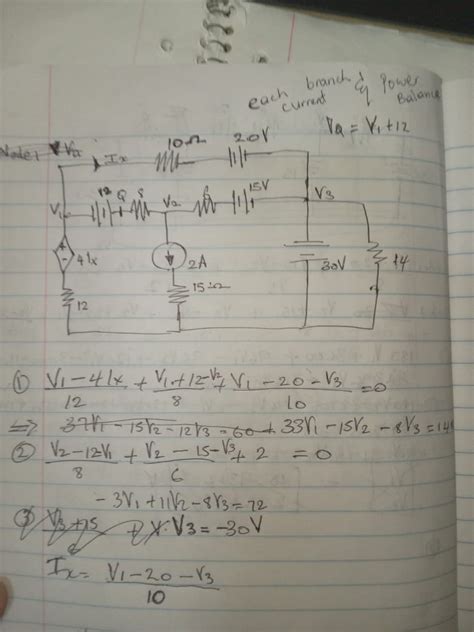 each branch & Power
current Balance
VQ = V1 + 12
Node 1
Ix
10Ω
20V
V1
12
Q
8
V2
6
15V
V3
4Ix
2A
30V
14
12
15Ω
① V1 - 4Ix / 12 + V1 + 12 - V2 / 8 + V1 - 20 - V3 / 10 = 0
⇒ 37V1 - 15V2 - 12V3 = 60 + 33V1 - 15V2 - 8V3 =
② V2 - 12V1 / 8 + V2 - 15 - V3 / 6 + 2 = 0
- 3V1 + 11V2 - 8V3 = 72
③ V3 + 15 V3 = -30V
Ix = V1 - 20 - V3 / 10